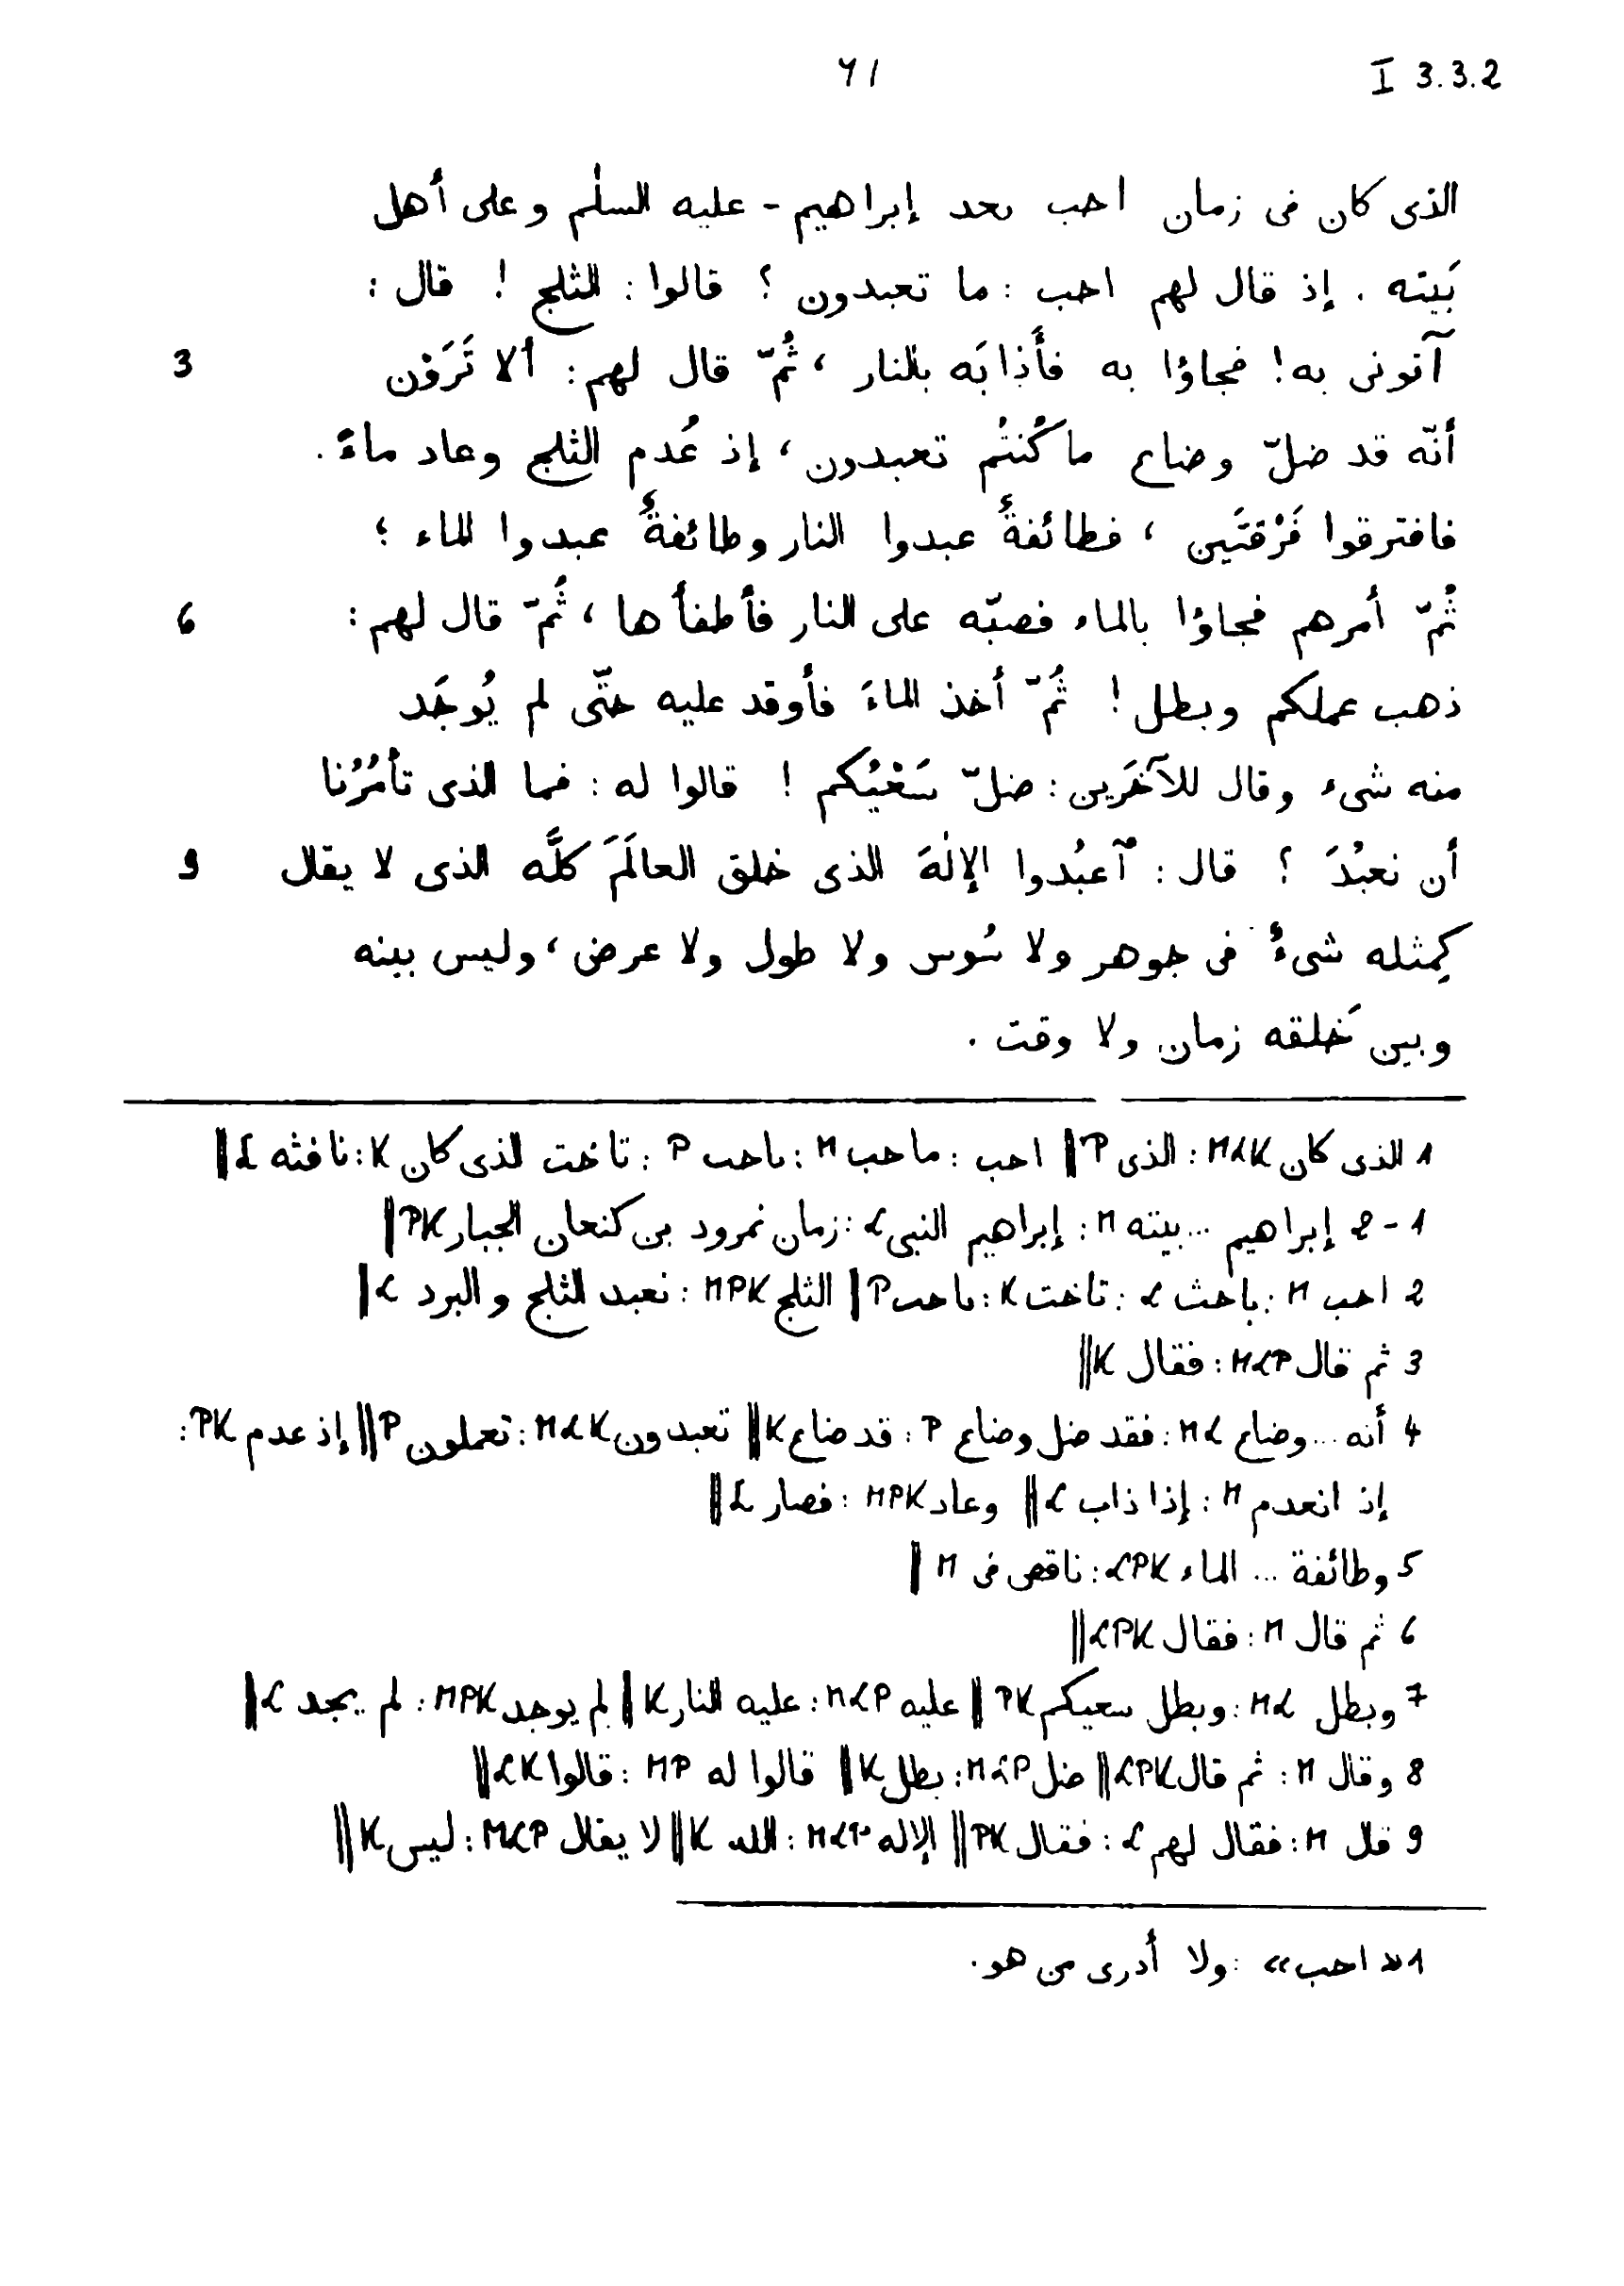 ٦١ I 3.3.2
الذى كان فى زمان احب ٮعد إبراهيم - عليه السلٰم وعلى أهل
بَيته . إذ قال لهم احب : ما تعبدون ؟ قالوا : الثلج ! قال :
آتونى به ! فجاؤا به فأَذابَه بالنار ، ثُمّ قال لهم : ألا تَرَوْن 3
أنّه قد ضلّ وضاع ما كُنتُم تعبدون ، إذ عُدم الثلج وعاد ماءً .
فافترقوا فَرْقتَين ، فطائفةٌ عبدوا النار وطائفةٌ عبدوا الماء ؛
ثُمّ أمرهم فجاؤا بالماء فصبّه على النار فأطفأها ، ثُمّ قال لهم : 6
ذهب عملكم وبطل ! ثُمّ أخذ الماءَ فأوقد عليه حتّى لم يُوجَد
منه شىء وقال للآخَرين : ضلّ سَعْيُكم ! قالوا له : فما الذى تأمُرُنا
أن نعبُدَ ؟ قال : ٱعبُدوا الإلٰهَ الذى خلق العالَمَ كلَّه الذى لا يقال 9
كمِثله شىءٌ فى جوهر ولا سُوس ولا طول ولا عرض ، وليس بينه
وبين خَلقه زمان ولا وقت .
1 الذى كان MLK : الذى P || احب : ماحب M : ٮاحٮ P : تاخت الذى كان K : نافثه L ||
1 - 2 إبراهيم ... بيته M : إبراهيم النبى L : زمان نمرود بن كنعان الجبار PK ||
2 احب M : باخث L : تاخت K : ٮاحٮ P || الثلج MPK : نعبد الثلج والبرد L ||
3 ثم قال MLP : فقال K ||
4 أنه ... وضاع ML : فقد ضل وضاع P : قد ضاع K || تعبدون MLK : تعملون P || إذ عدم PK :
إذ انعدم M : إذا ذاب L || وعاد MPK : فصار L ||
5 وطائفة ... الماء LPK : ناقص فى M ||
6 ثم قال M : فقال LPK ||
7 وبطل ML : وبطل سعيكم PK || عليه MLP : عليه النار K || لم يوجد MPK : لم يجد L ||
8 وقال M : ثم قال LPK || ضل MLP : بطل K || قالوا له MP : قالوا LK ||
9 قال M : فقال لهم L : فقال PK || الإله MLP : الله K || لا يقال MLP : ليس K ||
1 « احب » : ولا أدرى من هو .